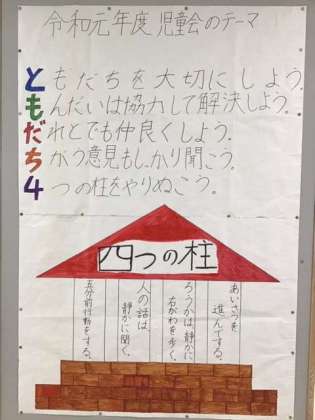 令和元年度 児童会のテーマ
ともだちを大切にしよう。
もんだいは協力して解決しよう。
だれとでも仲良くしよう。
ちがう意見もしっかり聞こう。
4つの柱をやりぬこう。
四つの柱
あいさつを
進んでする。
ろうかは、静かに
右がわを歩く。
人の話は、
静かに聞く。
五分前行動をする。